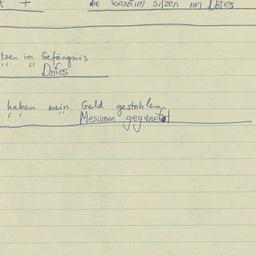 die Ganoven sitzen im Dofes
tzen im Gefängnis
" " Dofes
haben mein Geld gestohlen
" " " Mesumen geganeft